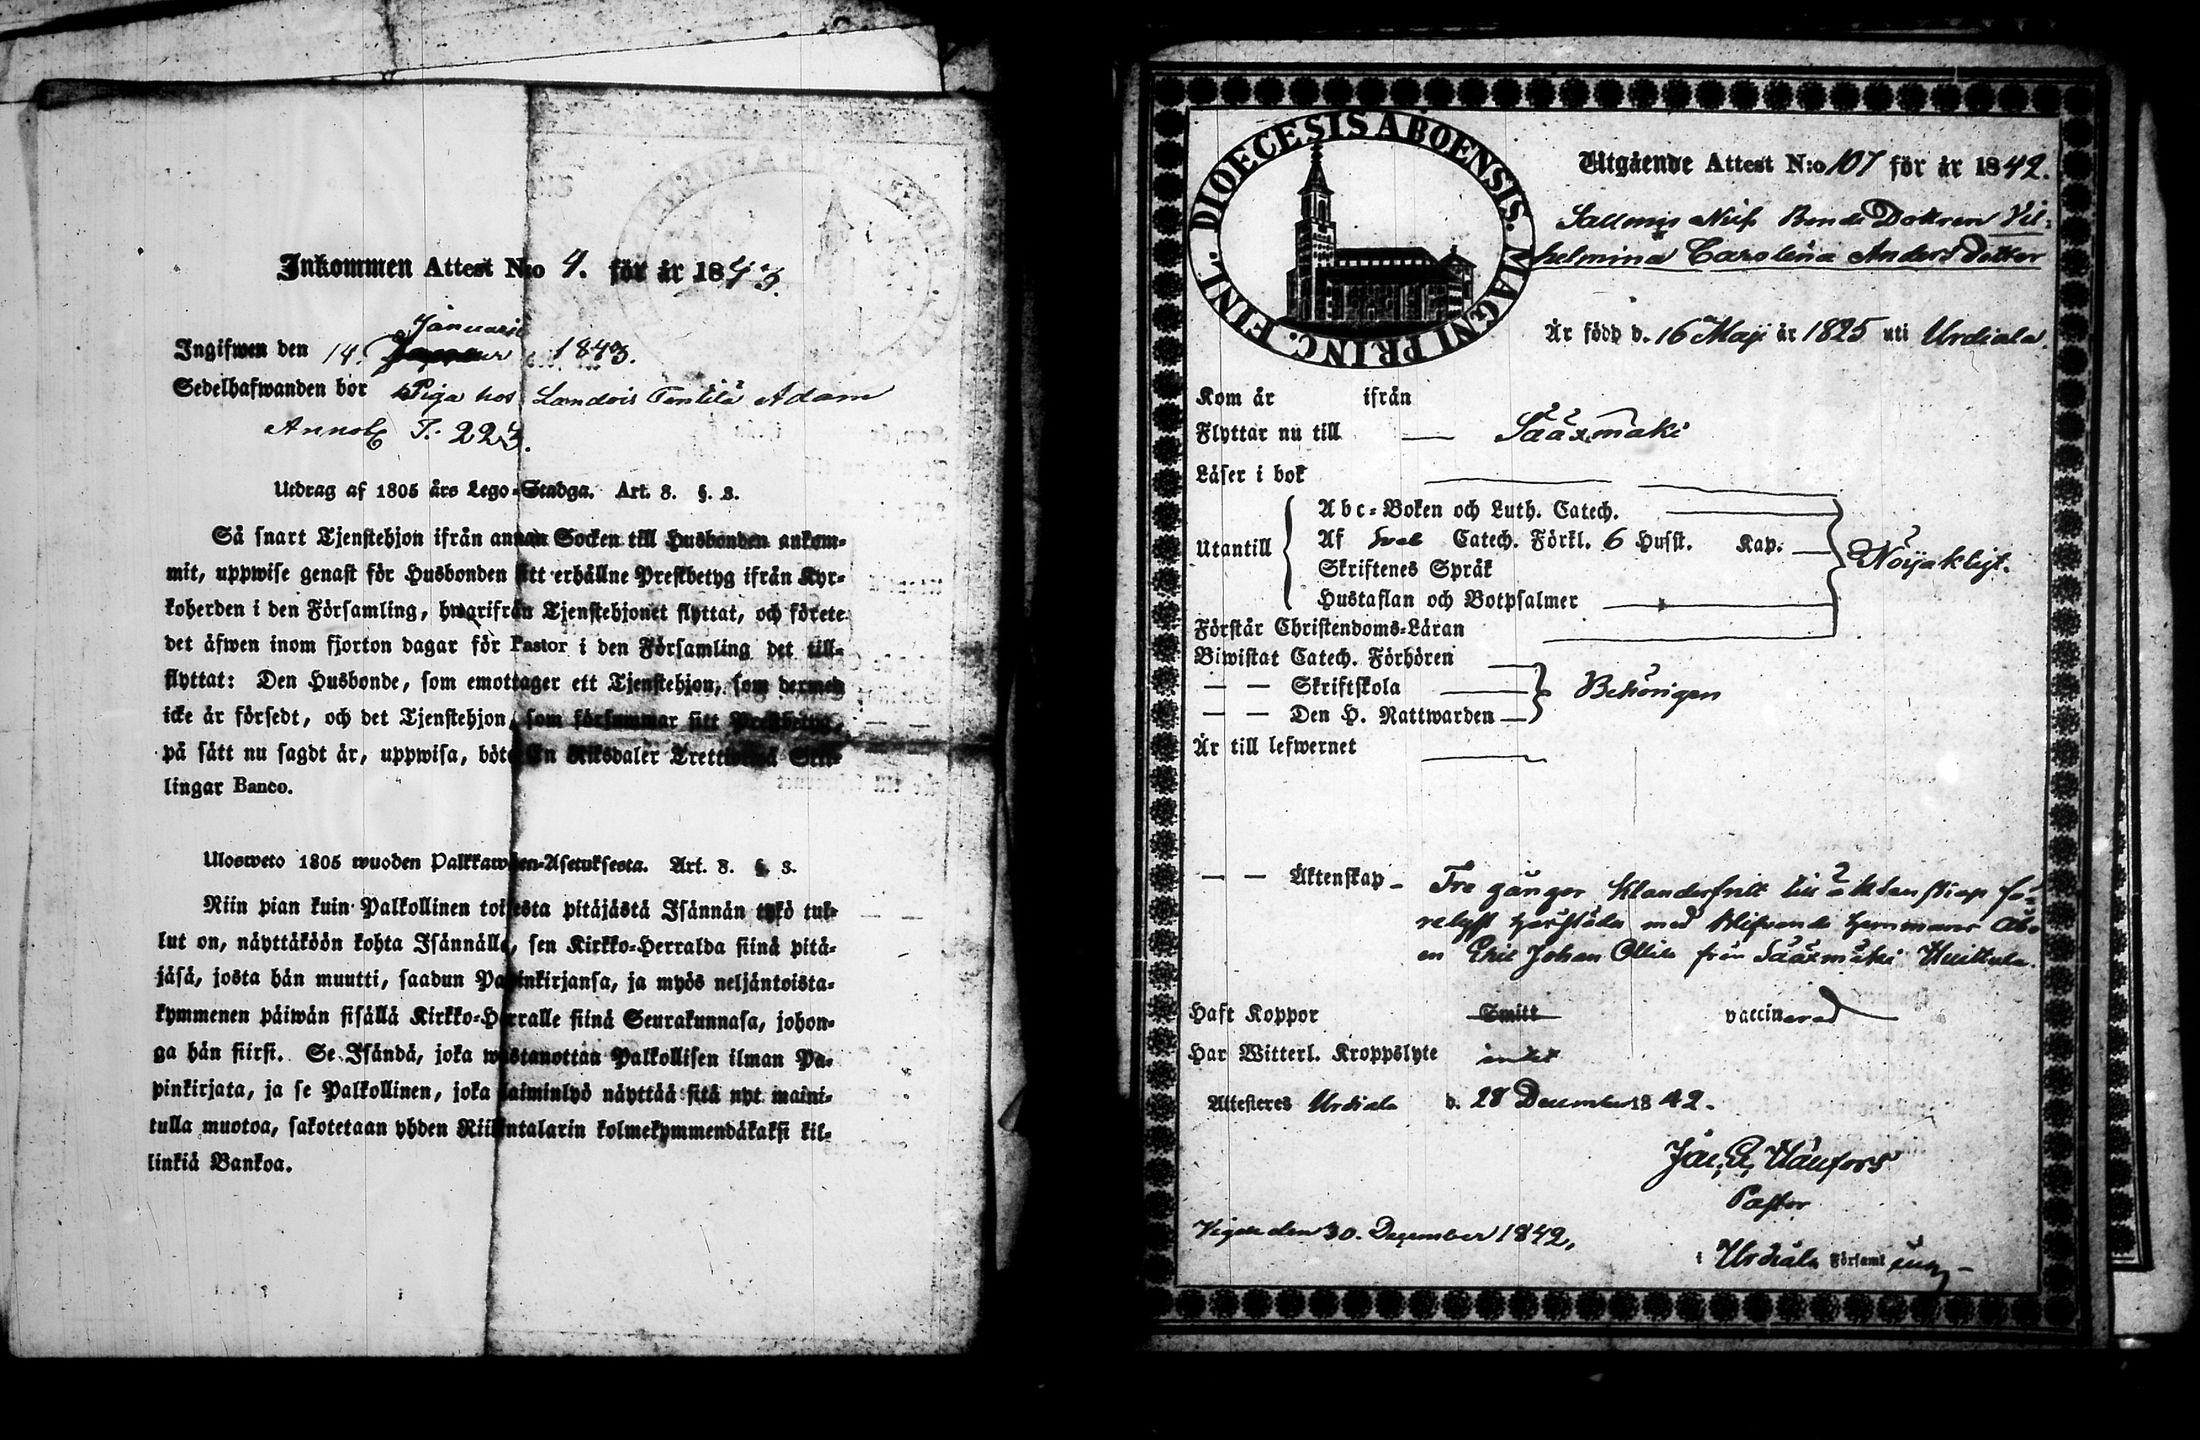 Inkommen Attest N:o 4. för år 1843.
Januarii
Ingifwen den 14. 1843.
Sedelhafwanden bor Piga hos Adam
Annot. T. 223.
Utdrag af 1805 års Lego-Stadga. Art. 8. §. 3.
Så snart Tjenstehjon ifrån annan Socken till Husbonden ankom-
mit, uppwise genast för Husbonden sitt erhållne Prestbetyg ifrån Kyr-
koherden i den Församling, hwarifrån Tjenstehjonet flyttat, och förete
det äfwen inom fjorton dagar för Pastor i den Församling det till-
flyttat: Den Husbonde, som emottager ett Tjenstehjon, som dermed
icke är försedt, och det Tjenstehjon, som försummar sitt Prestbetyg,
på sätt nu sagdt är, uppwisa, böte En Riksdaler Trettiotwå Skil-
lingar Banco.
Ulosweto 1805 wuoden Palkkawäen-Asetuksesta. Art. 8. §. 3.
Niin pian kuin Palkollinen toisesta pitäjästä Isännän tykö tul-
lut on, näyttäköön kohta Isännälle, sen Kirkko-Herralda siinä pitä-
jäsä, josta hän muutti, saadun Papinkirjansa, ja myös neljäntoista-
kymmenen päiwän sisällä Kirkko-Herralle siinä Seurakunnasa, johon-
ga hän siirsi. Se Isändä, joka wastanottaa Palkollisen ilman Pa-
pinkirjata, ja se Palkollinen, joka laiminlyö näyttää sitä nyt maini-
tulla muotoa, sakotetaan yhden Riikintalarin kolmekymmendäkaksi kil-
linkiä Bankoa.
DIOECESIS ABOENSIS. MAGNI PRINC. FINL.
Utgående Attest N:o 107 för år 1842.
Bonde Dottren Vil-
helmina Carolina Anders Dotter
Är född d. 16 Maji år 1825 uti Urdiala.
Kom år ifrån
Flyttar nu till Sääxmäki
Läser i bok
Utantill
Abc-Boken och Luth. Catech.
Af Sveb Catech. Förkl. 6 Hufst. Kap.
Nöijaktigt.
Skriftenes Språk
Hustaflan och Botpsalmer
Förstår Christendoms-Läran
Biwistat Catech. Förhören
— — Skriftskola
Behörigen
— — Den H. Nattwarden
Är till lefwernet
— — Äktenskap Tre gånger klanderfritt till äktenskap fö-
relyst härstädes med blifvande Hemmans Åbo-
en Eric Johan Ollila från Sääxmäki Huittula.
Haft Koppor Smitt vaccinerad
Har Witterl. Kroppslyte intet
Attesteres Urdiala d. 28 December 1842.
Pastor
Vigde den 30. December 1842.
i Urdiala Församling